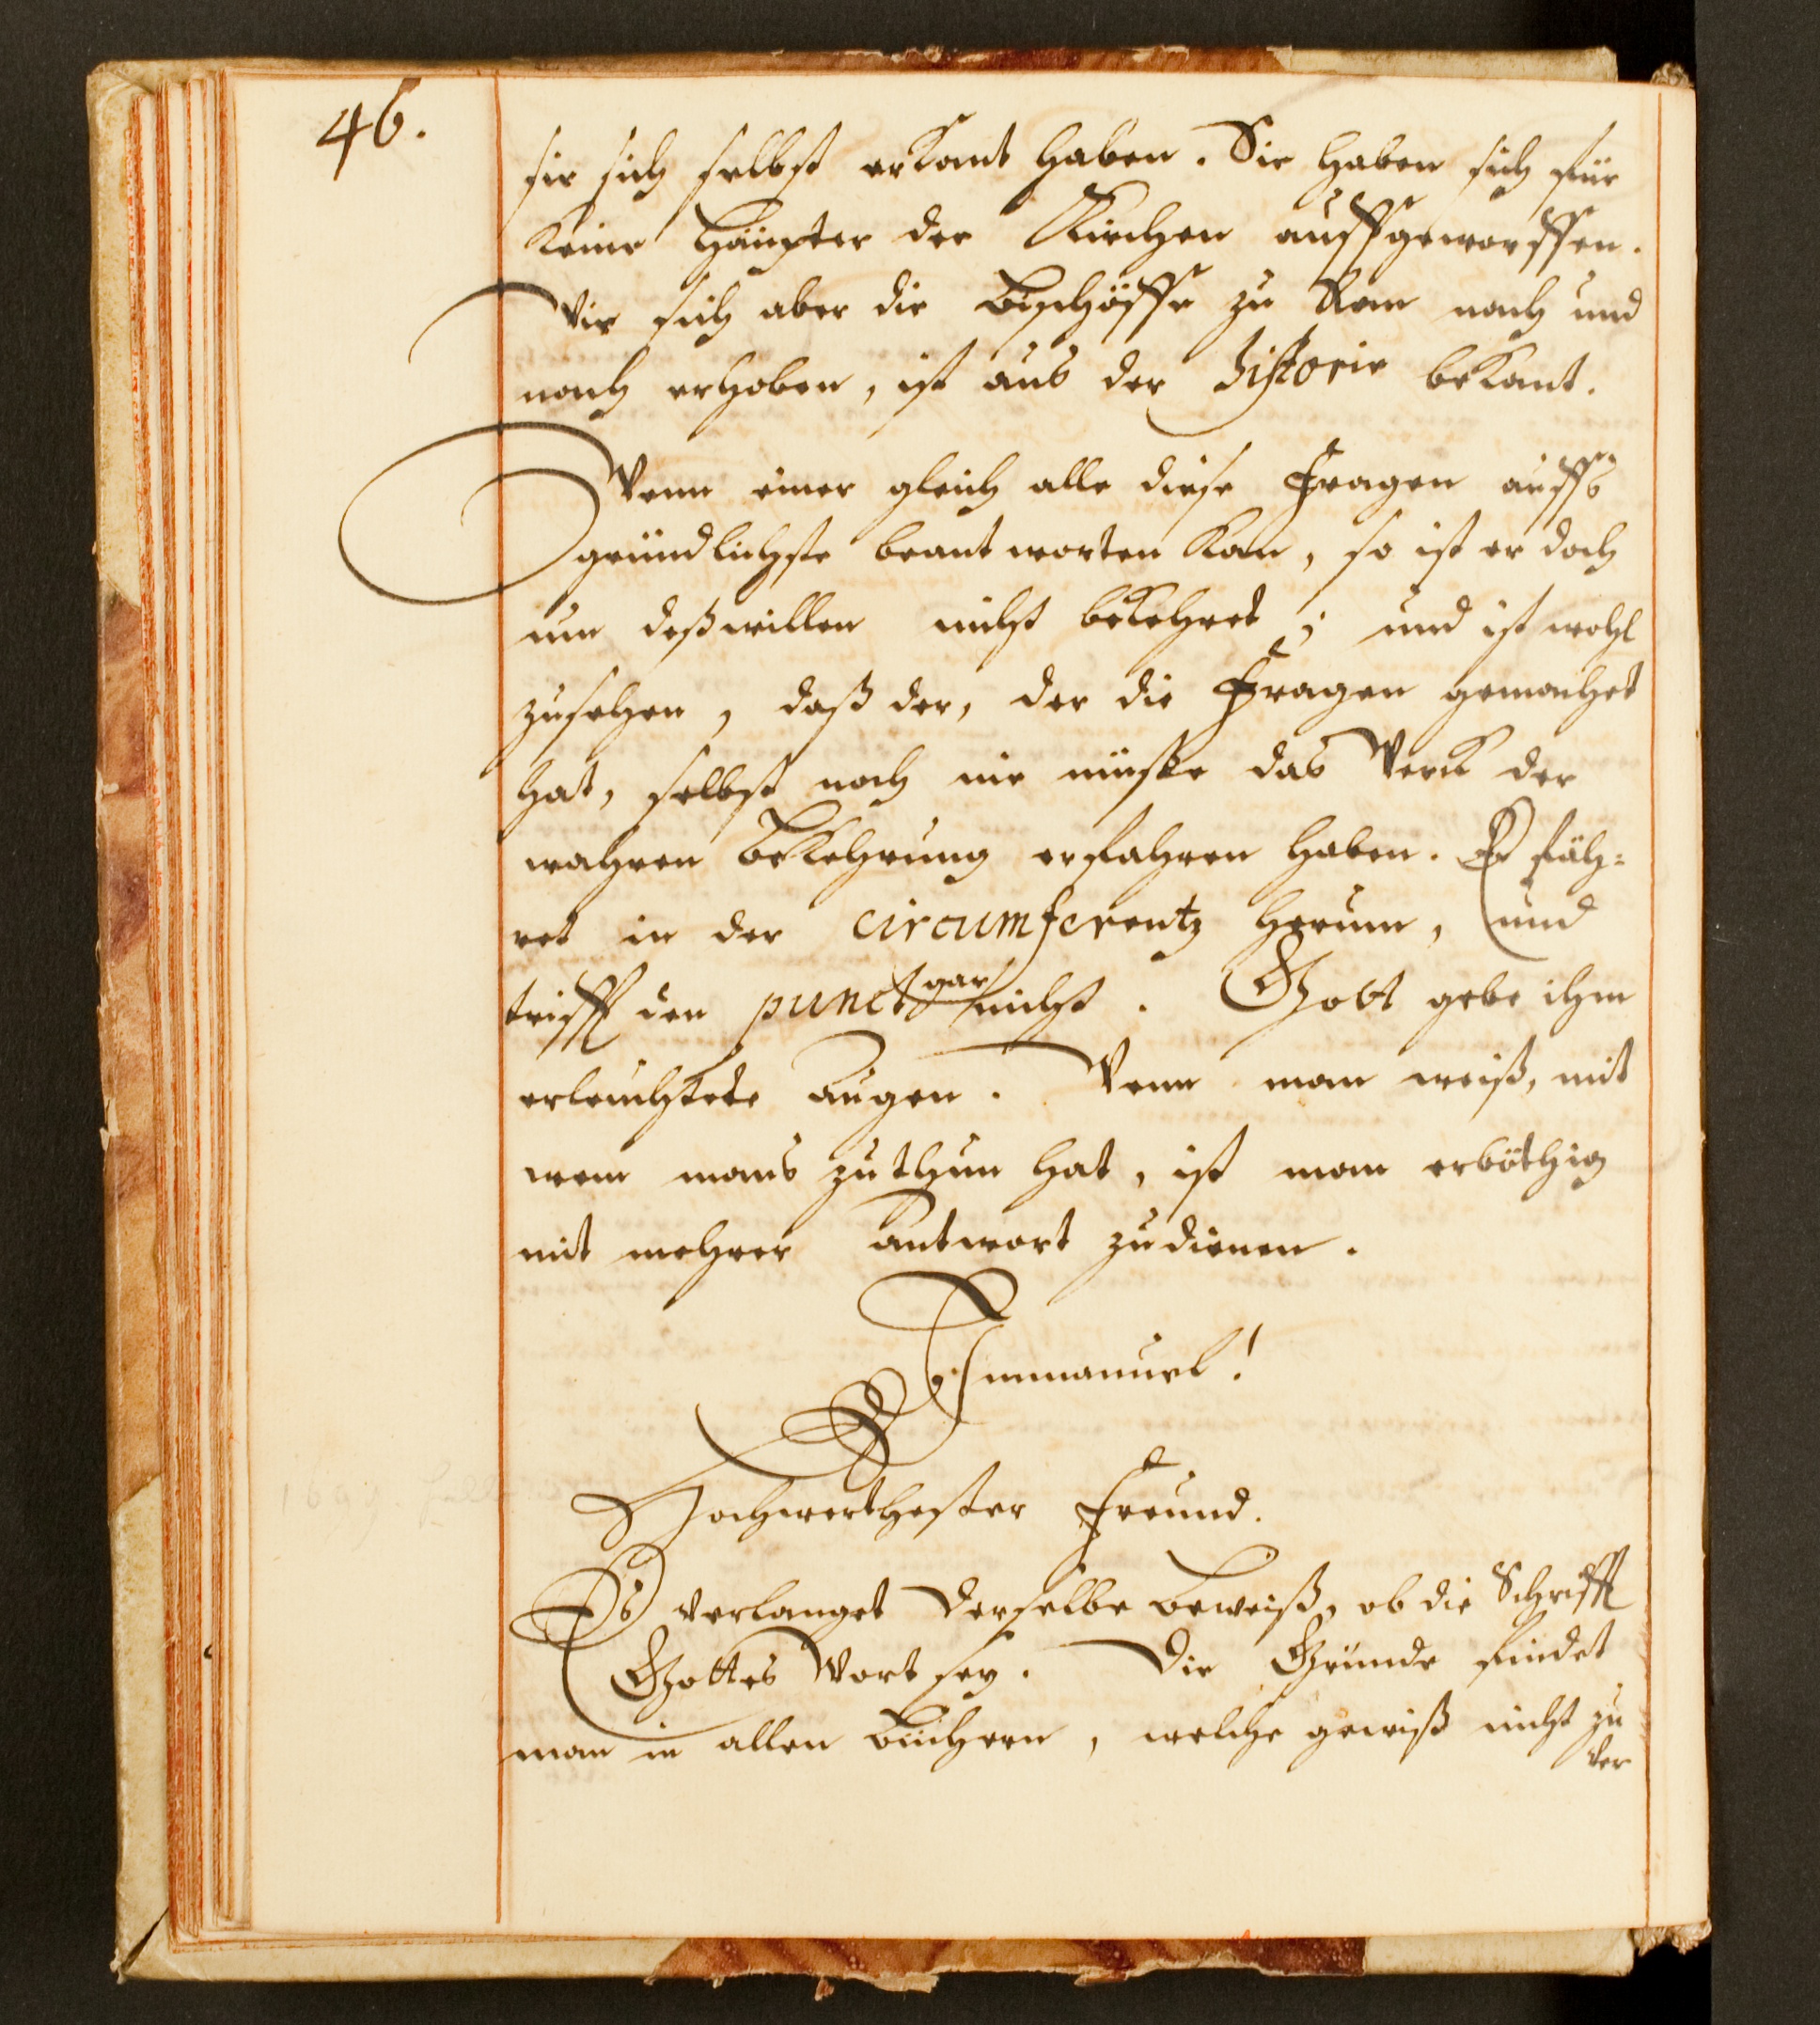 46.
sie sich selbst erkant haben. Sie haben sich für
keine Häupter der Kirchen auffgeworffen.
Wie sich aber die Bischöffe zu Rom nach und
nach erhoben, ist aus der Historie bekant.
Wenn einer gleich alle diese Fragen auffs
gründlichste beantworten kan, so ist er doch
um deßwillen nicht bekehret; und ist wohl
zusehen, daß der, der die Fragen gemachet
hat, selbst noch nie müste das Werck der
wahren Bekehrung erfahren haben. Er fäh-
ret in der circumferentz herum, und
trifft den punct gar nicht. Gott gebe ihm
erleuchtete Augen. Wenn man weiß, mit
wem mans zuthun hat, ist man erböthig
mit mehrer Antwort zudienen.
Immanuel!
Hochwerthester Freund.
Es verlanget derselbe Beweiß, ob die Schrifft
Gottes Wort sey. Die Gründe findet
man in allen Büchern, welche gewiß nicht zu
ver
1699.